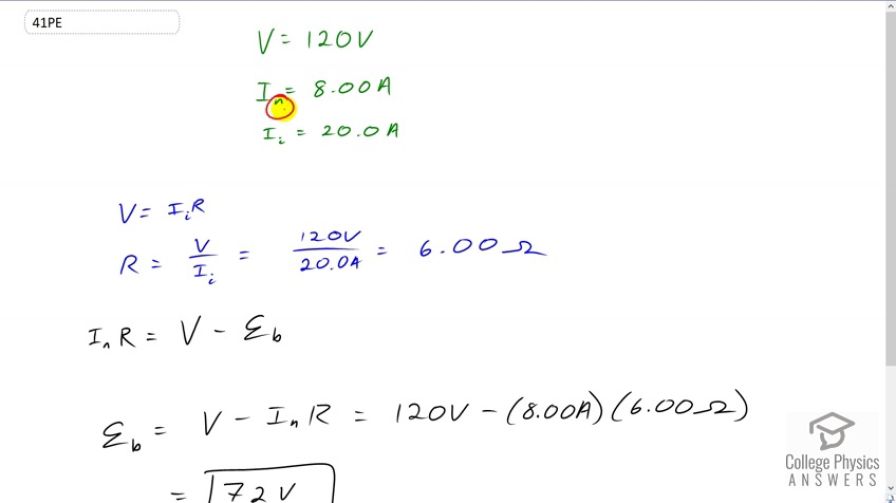 41PE
V = 120V
Iₙ = 8.00A
Iᵢ = 20.0A
V = IᵢR
R = V/Iᵢ = 120V/20.0A = 6.00Ω
IₙR = V − Ɛb
Ɛb = V − IₙR = 120V − (8.00A)(6.00Ω)
= 72V
College Physics
ANSWERS